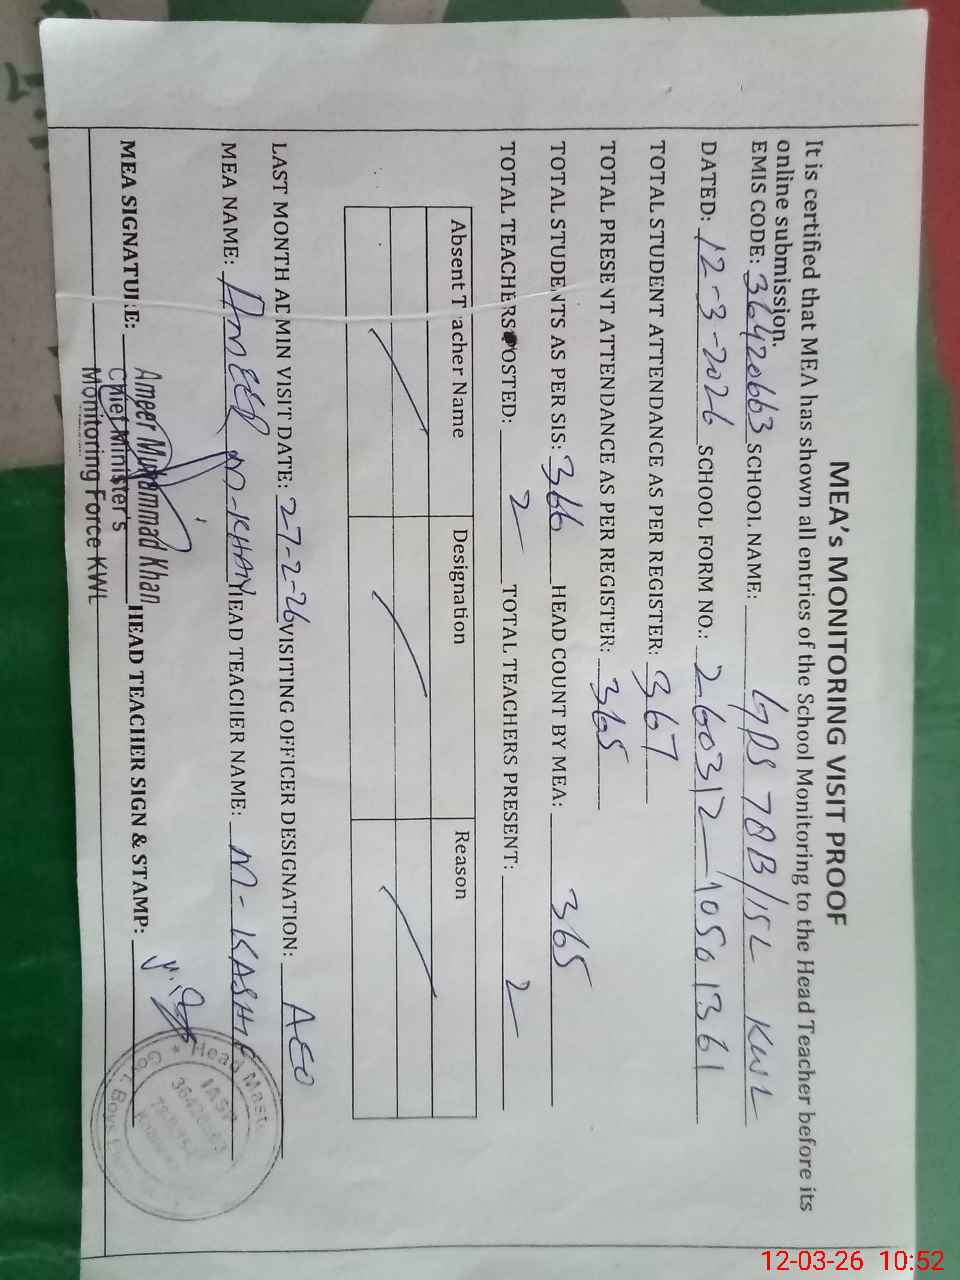 MEA's MONITORING VISIT PROOF
It is certified that MEA has shown all entries of the School Monitoring to the Head Teacher before its
online submission.
EMIS CODE: 36420663 SCHOOL NAME: GPS 78B/15L KWL
DATED: 12-3-2026 SCHOOL FORM NO.: 260312-10501361
TOTAL STUDENT ATTENDANCE AS PER REGISTER: 367
TOTAL PRESENT ATTENDANCE AS PER REGISTER: 365
TOTAL STUDENTS AS PER SIS: 366 HEAD COUNT BY MEA: 365
TOTAL TEACHERS POSTED: 2 TOTAL TEACHERS PRESENT: 2
Absent Teacher Name Designation Reason
LAST MONTH ADMIN VISIT DATE: 27-2-26 VISITING OFFICER DESIGNATION: AEO
MEA NAME: AMEER M-KHAN HEAD TEACHER NAME: M-KASHIF
MEA SIGNATURE: HEAD TEACHER SIGN & STAMP:
Ameer Muhammad Khan
Chief Minister's
Monitoring Force KWL
Head Master
12-03-26 10:52